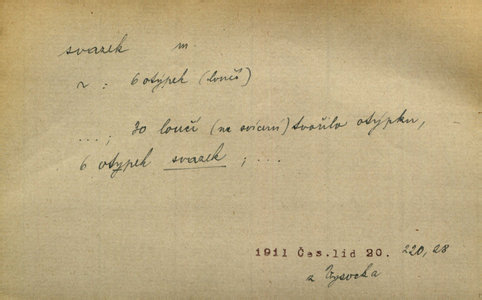 svazek m.
v: 6 otýpek (loučí)
...; 30 loučí (na svícení) tvořilo otýpku,
6 otýpek svazek; ...
1911 Čes. lid 20. 220, 28
z Vysocka